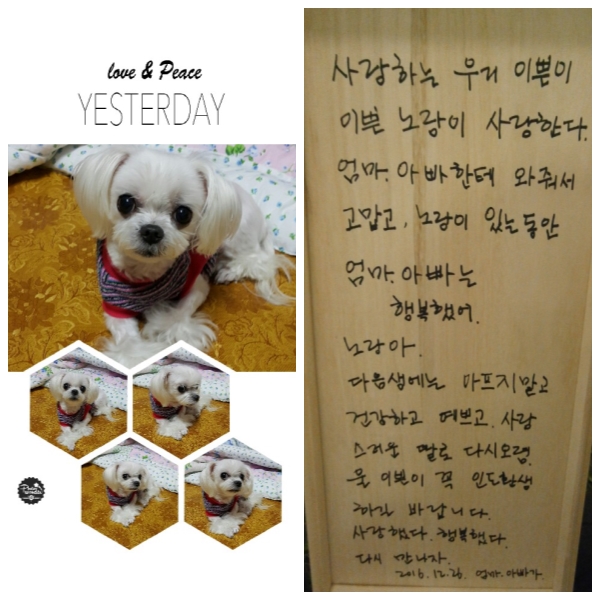 love & Peace
YESTERDAY
사랑하는 우리 이쁜이
이쁜 노랑이 사랑한다.
엄마.아빠한테 와줘서
고맙고, 노랑이 있는동안
엄마.아빠는
행복했어.
노랑아.
다음생에는 아프지말고
건강하고 예쁘고, 사랑
스러운 딸로 다시오렴.
울 이쁜이 꼭 인도환생
하길 바랍니다.
사랑했다. 행복했다.
다시 만나자.
2016.12.26. 엄마.아빠가.